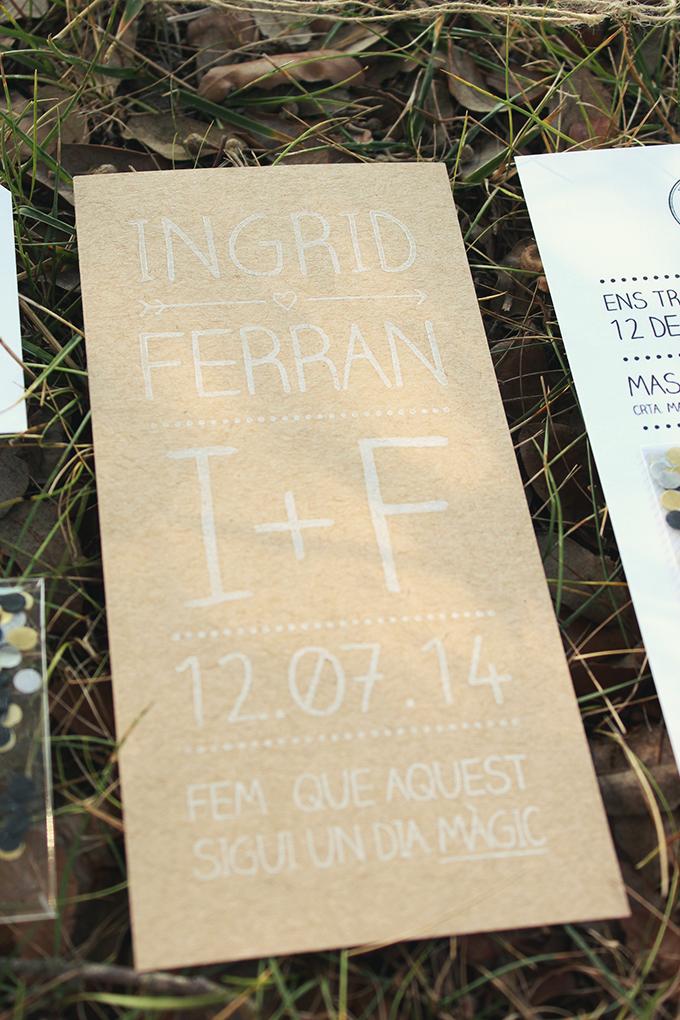 INGRID
FERRAN
I + F
12.07.14
FEM QUE AQUEST
SIGUI UN DIA MÀGIC
ENS TR
12 DE
MAS
CRTA. MA